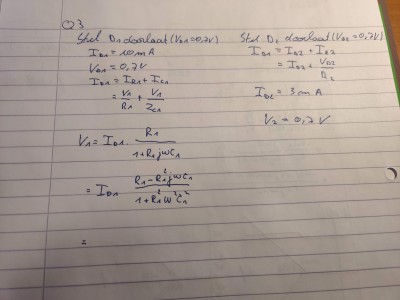 Q3
Stel D₁ doorlaat (V_D1=0,7V)
I_D1 = 10mA
V_D1 = 0,7V
I_D1 = I_R1 + I_C1
= V₁/R₁ + V₁/Z_C1
V₁ = I_D1 · R₁/(1+R₁jωC₁)
= I_D1 (R₁-R₁²jωC₁)/(1+R₁²ω²C₁²)
=
Stel D₂ doorlaat (V_D2=0,7V)
I_D1 = I_D2 + I_R2
= I_D2 + V_D2/R₂
= 3mA
V₂ = 0,7V